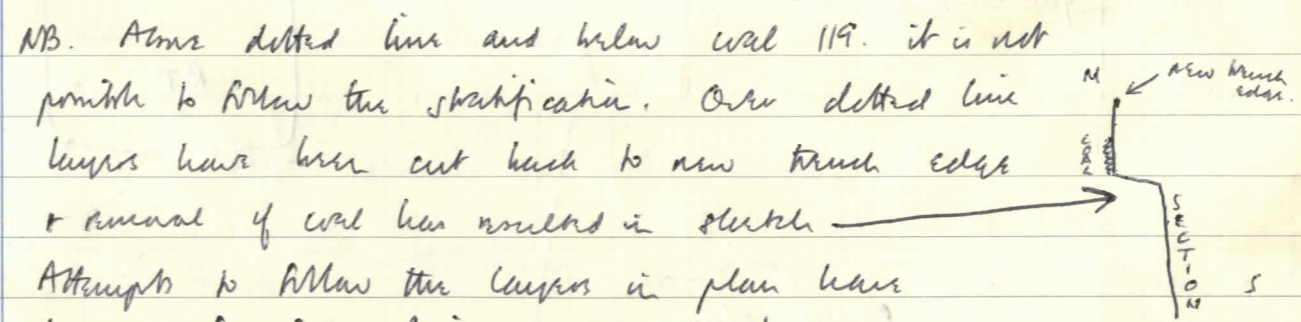 NB. Above dotted line and below coal 119. it is not
possible to follow the stratification. Over dotted line
layers have been cut back to new trench edge
+ removal of coal has resulted in sketch
Attempts to follow the layers in plan have
N
new trench
edge.
COAL
SECTION
S